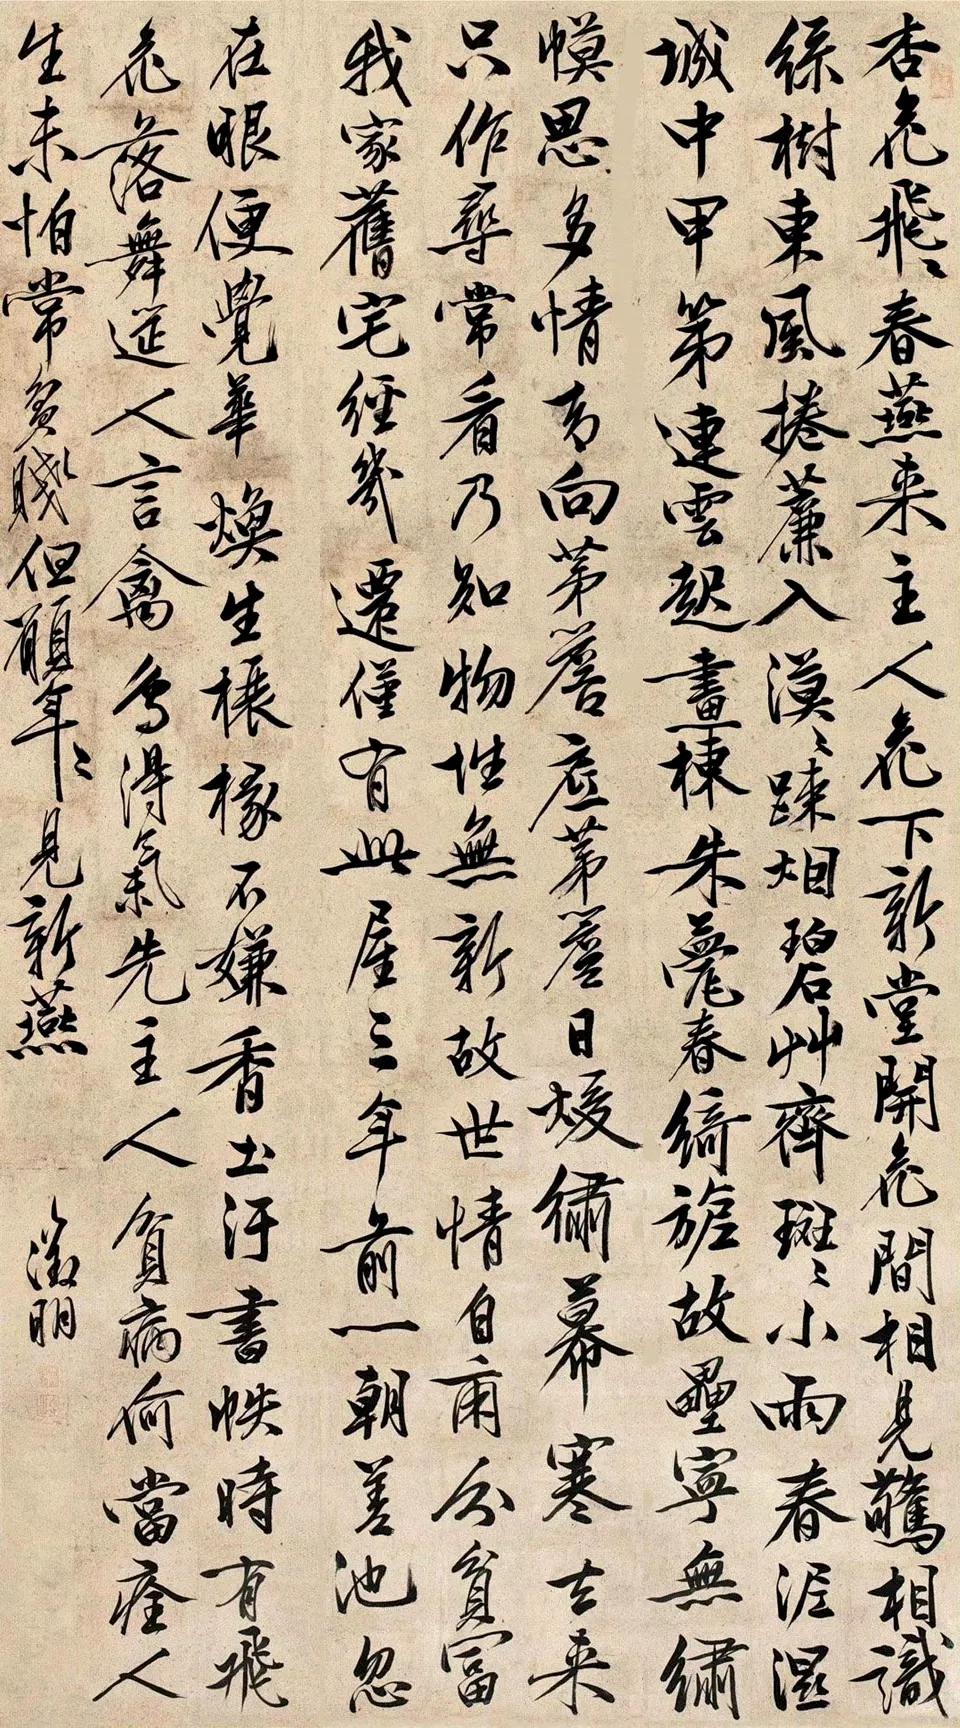 杏花飛〻春燕来主人花下新堂開花間相見驚相識
綠樹東風捲簾入漠〻踈烟碧艸齊斑〻小雨春泥濕
城中甲第連雲起畫棟朱甍春綺旎故壘寧無繡
幙思多情却向茅簷底茅簷日煖繡幕寒去来
只作尋常看乃知物性無新故世情自爾分貧富
我家舊宅經幾遷僅有此屋三年前一朝差池忽
在眼便覺華煥生榱椽不嫌香土汙書帙時有飛
花落舞筵人言禽鳥得氣先主人貧病何當痊人
生未怕常貧賤但願年〻見新燕
徵明